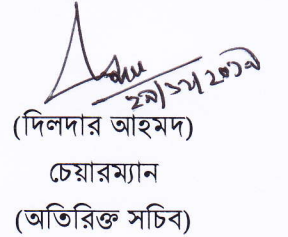 ২৯/১২/২০১৯
(দিলদার আহমদ)
চেয়ারম্যান
(অতিরিক্ত সচিব)